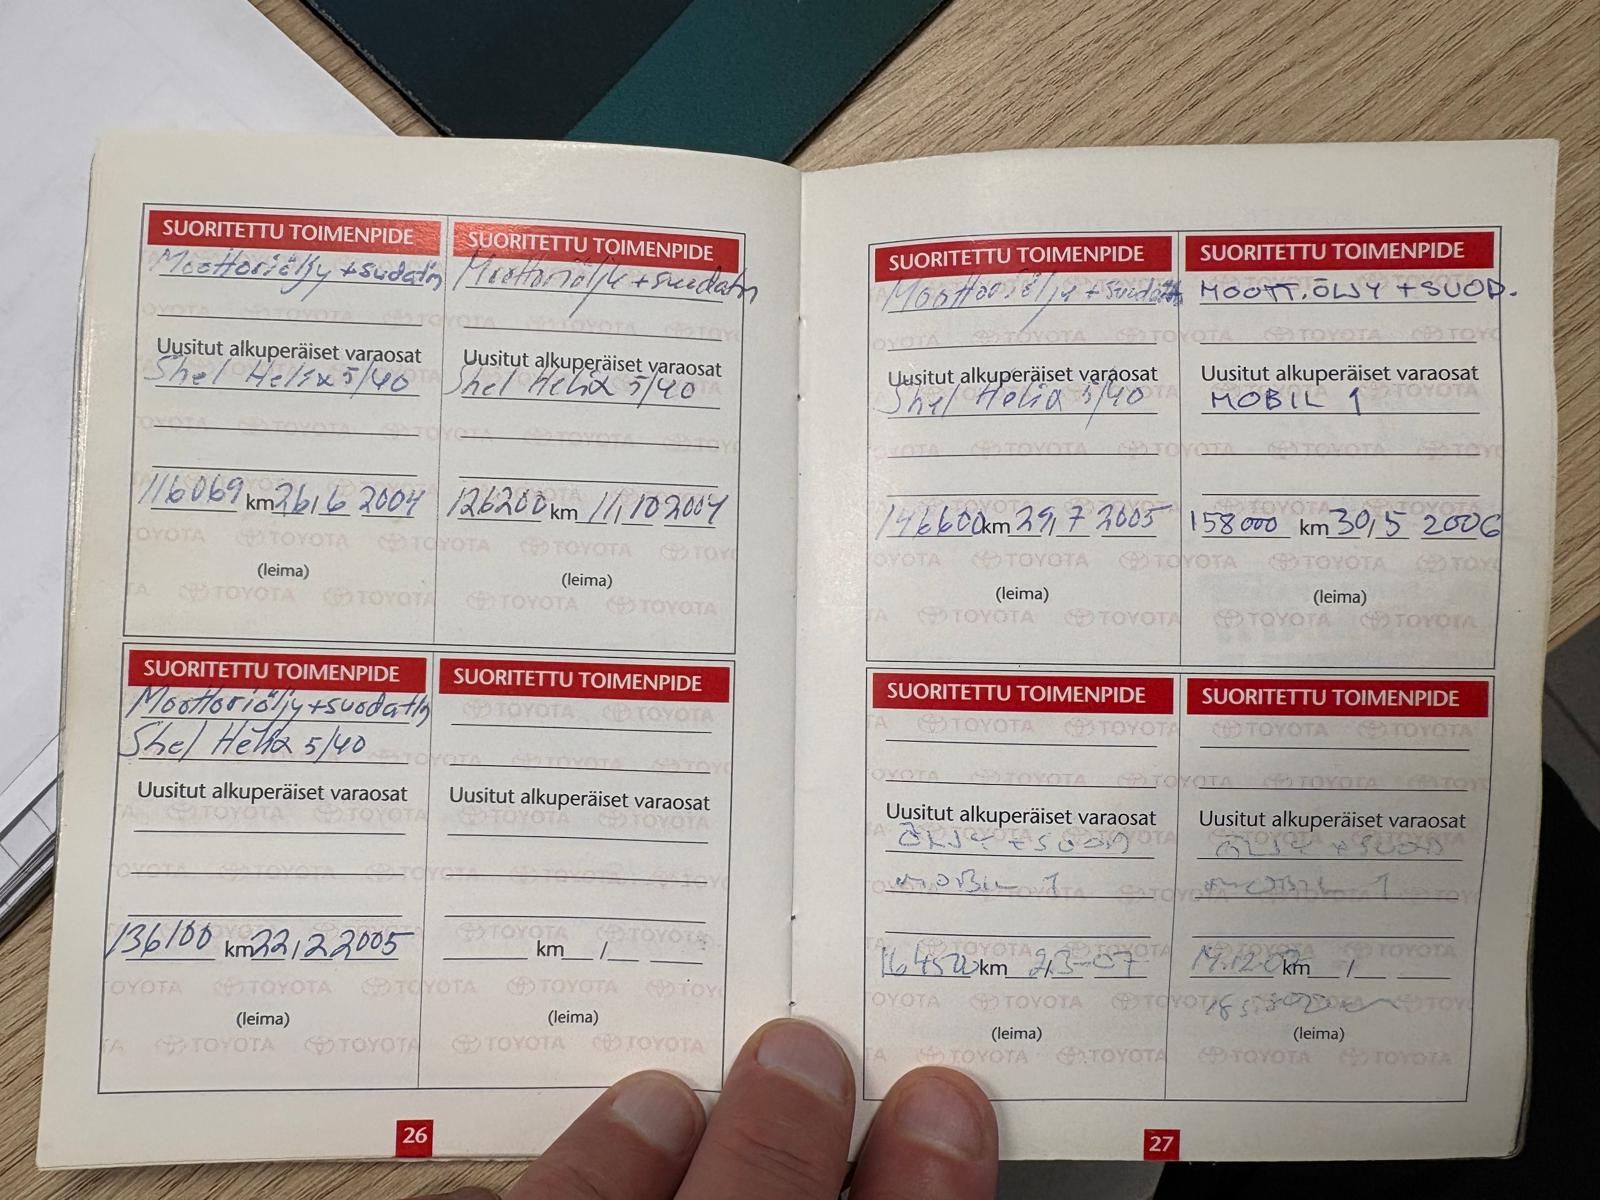 SUORITETTU TOIMENPIDE
Moottoriöljy + suodatin
Uusitut alkuperäiset varaosat
Shel Helix 5/40
116069 km 26,6 2004
(leima)
SUORITETTU TOIMENPIDE
Moottoriöljy + suodatin
Uusitut alkuperäiset varaosat
Shel Helix 5/40
126200 km 11,10 2004
(leima)
SUORITETTU TOIMENPIDE
Moottoriöljy + suodatin
Shel Helix 5/40
Uusitut alkuperäiset varaosat
136100 km 22,2 2005
(leima)
SUORITETTU TOIMENPIDE
Uusitut alkuperäiset varaosat
km /
(leima)
26
SUORITETTU TOIMENPIDE
Moottoriöljy + suodatin
Uusitut alkuperäiset varaosat
Shel Helix 5/40
146600 km 29,7 2005
(leima)
SUORITETTU TOIMENPIDE
MOOTT.ÖLJY + SUOD.
Uusitut alkuperäiset varaosat
MOBIL 1
158000 km 30,5 2006
(leima)
SUORITETTU TOIMENPIDE
Uusitut alkuperäiset varaosat
ÖLJY + SUOD
MOBIL 1
164500 km 2,3-07
(leima)
SUORITETTU TOIMENPIDE
Uusitut alkuperäiset varaosat
ÖLJY + SUOD
MOBIL 1
km /
(leima)
27